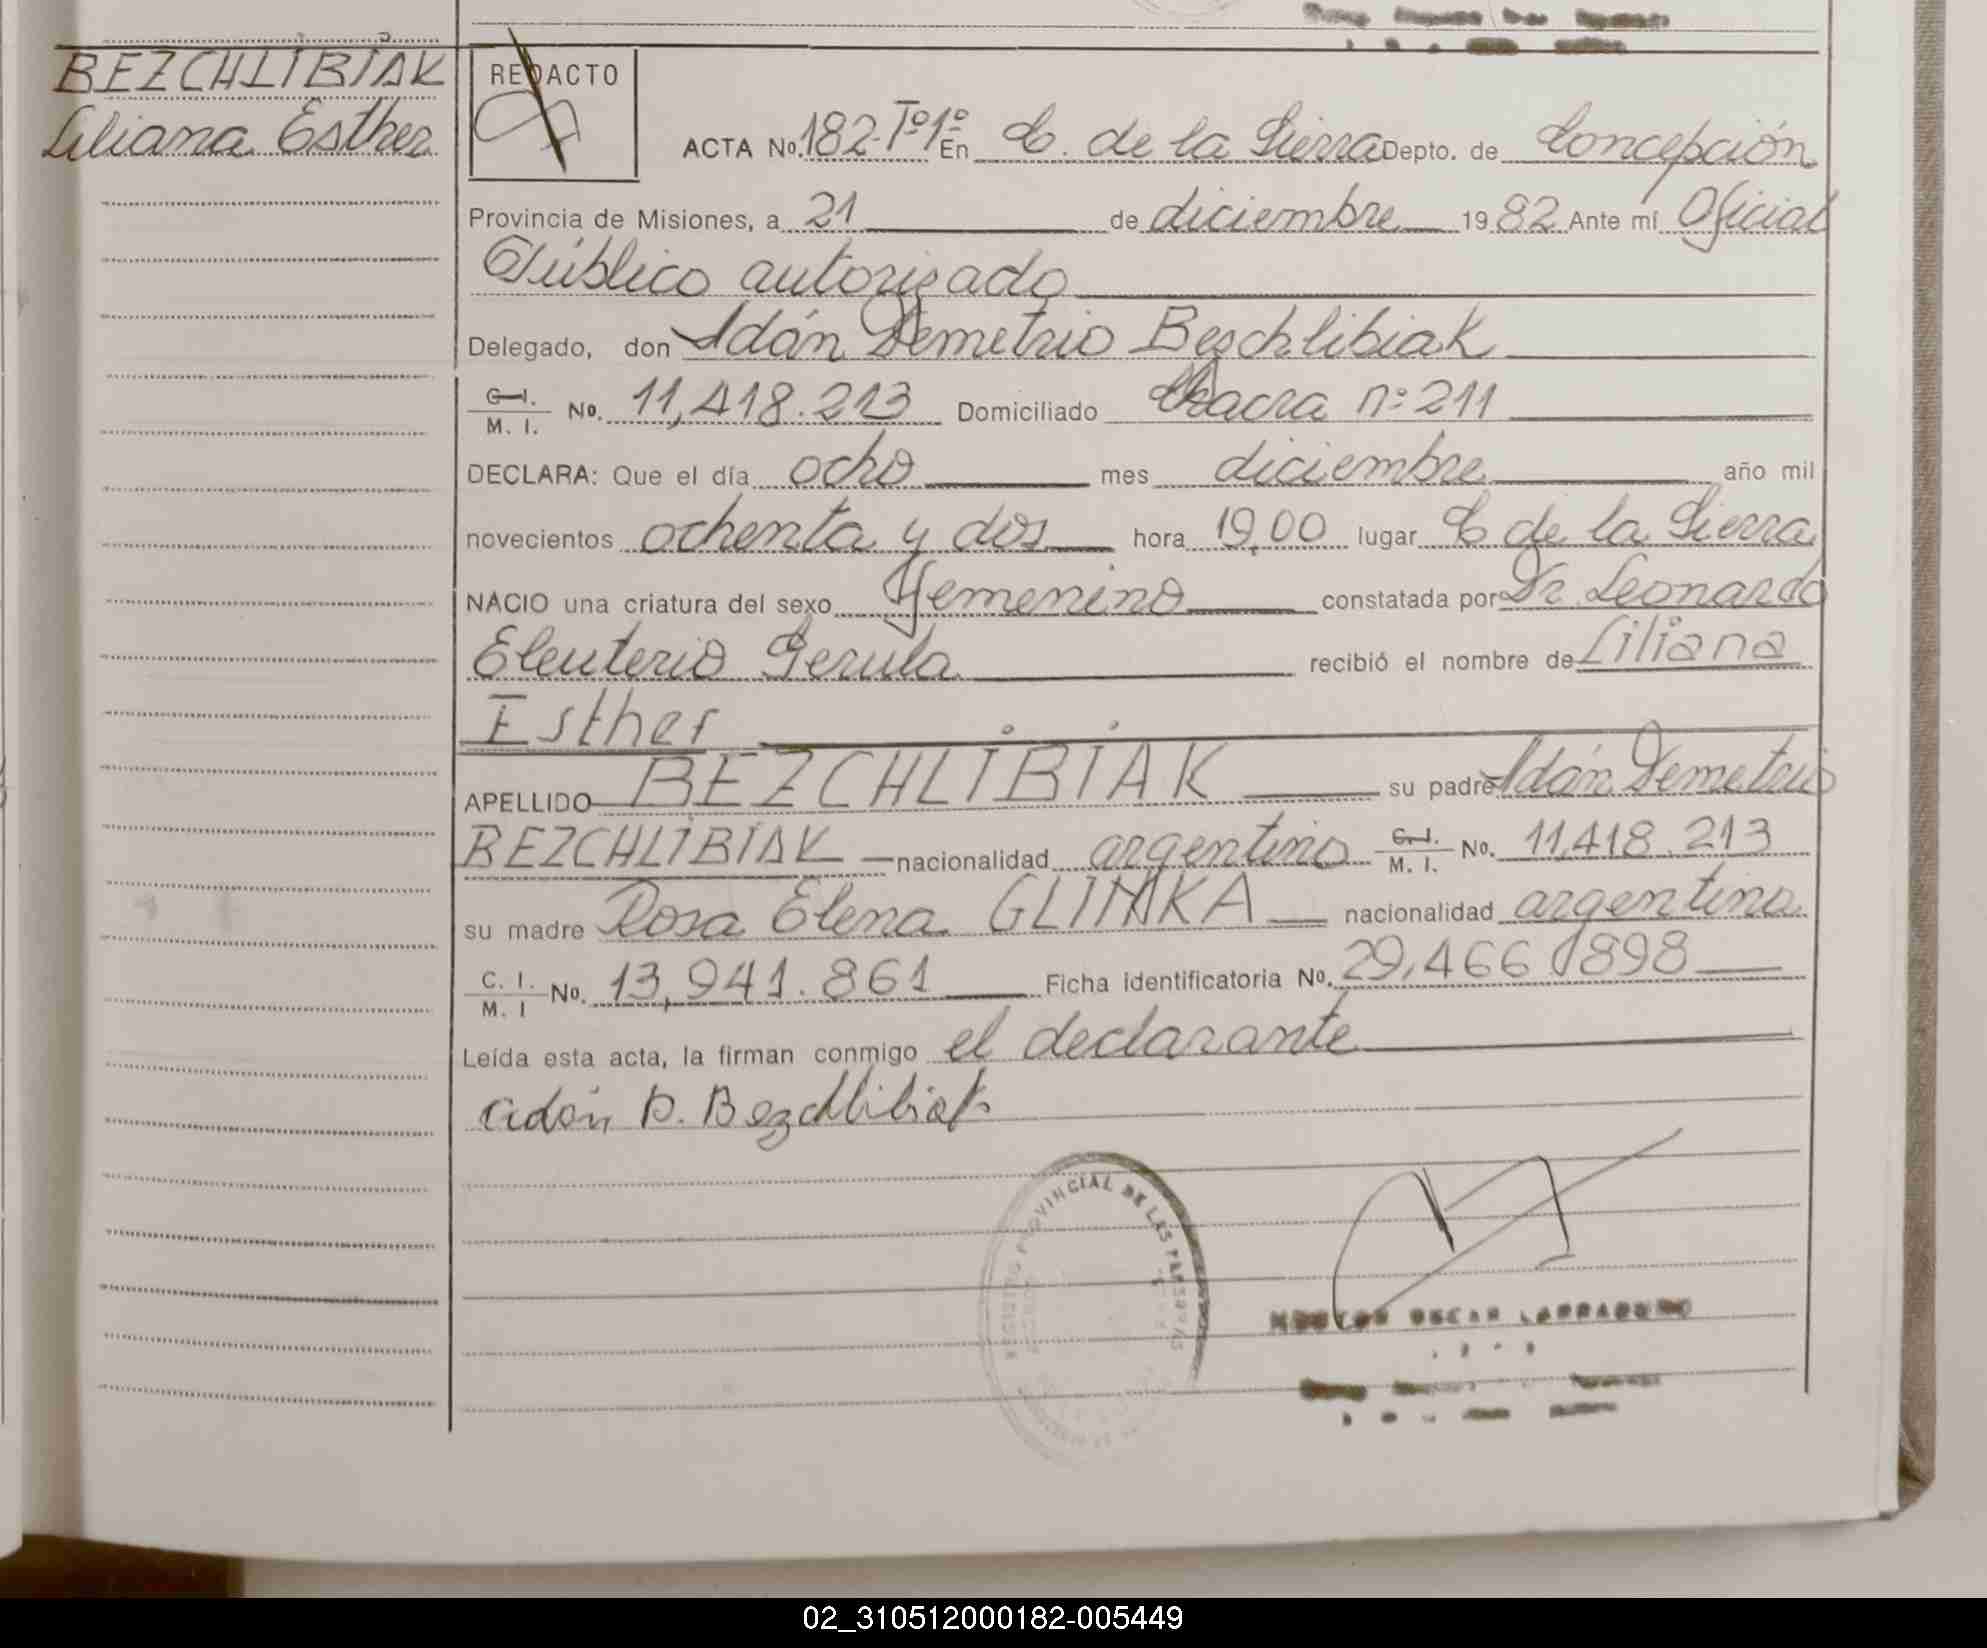 BEZCHLIBIAK
Liliana Esther
REDACTO
ACTA No. 182-Tº1º En C. de la Sierra Depto. de Concepción
Provincia de Misiones, a 21 de diciembre 1982 Ante mí Oficial
Público autorizado
Delegado, don Adán Demetrio Bezchlibiak
C. I. M. I. No. 11,418.213 Domiciliado Chacra nº 211
DECLARA: Que el día ocho mes diciembre año mil
novecientos ochenta y dos hora 19,00 lugar C de la Sierra
NACIO una criatura del sexo femenino constatada por Dr. Leonardo
Eleuterio Gerula recibió el nombre de Liliana
Esther
APELLIDO BEZCHLIBIAK su padre Adán Demetrio
BEZCHLIBIAK nacionalidad argentino C. I. M. I. No. 11,418.213
su madre Rosa Elena GLINKA nacionalidad argentina
C. I. M. I No. 13,941.861 Ficha identificatoria No. 29,466.898
Leída esta acta, la firman conmigo el declarante
Adán D. Bezchlibiak
REGISTRO PROVINCIAL DE LAS PERSONAS
OSCAR
02_310512000182-005449